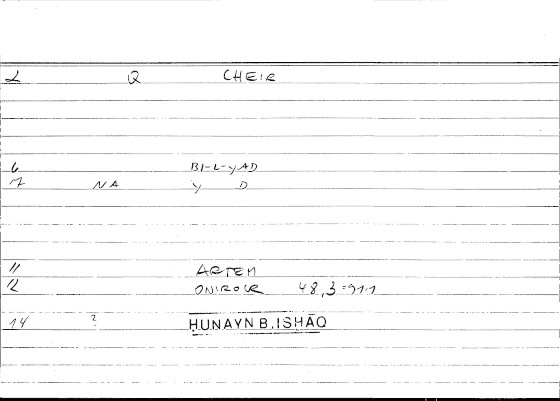 2 Q CHEIR
6 BI-L-YAD
7 NA Y D
11 ARTEM
12 ONIROCR 48,3 = 91,1
14 ? ḤUNAYN B. ISḤĀQ